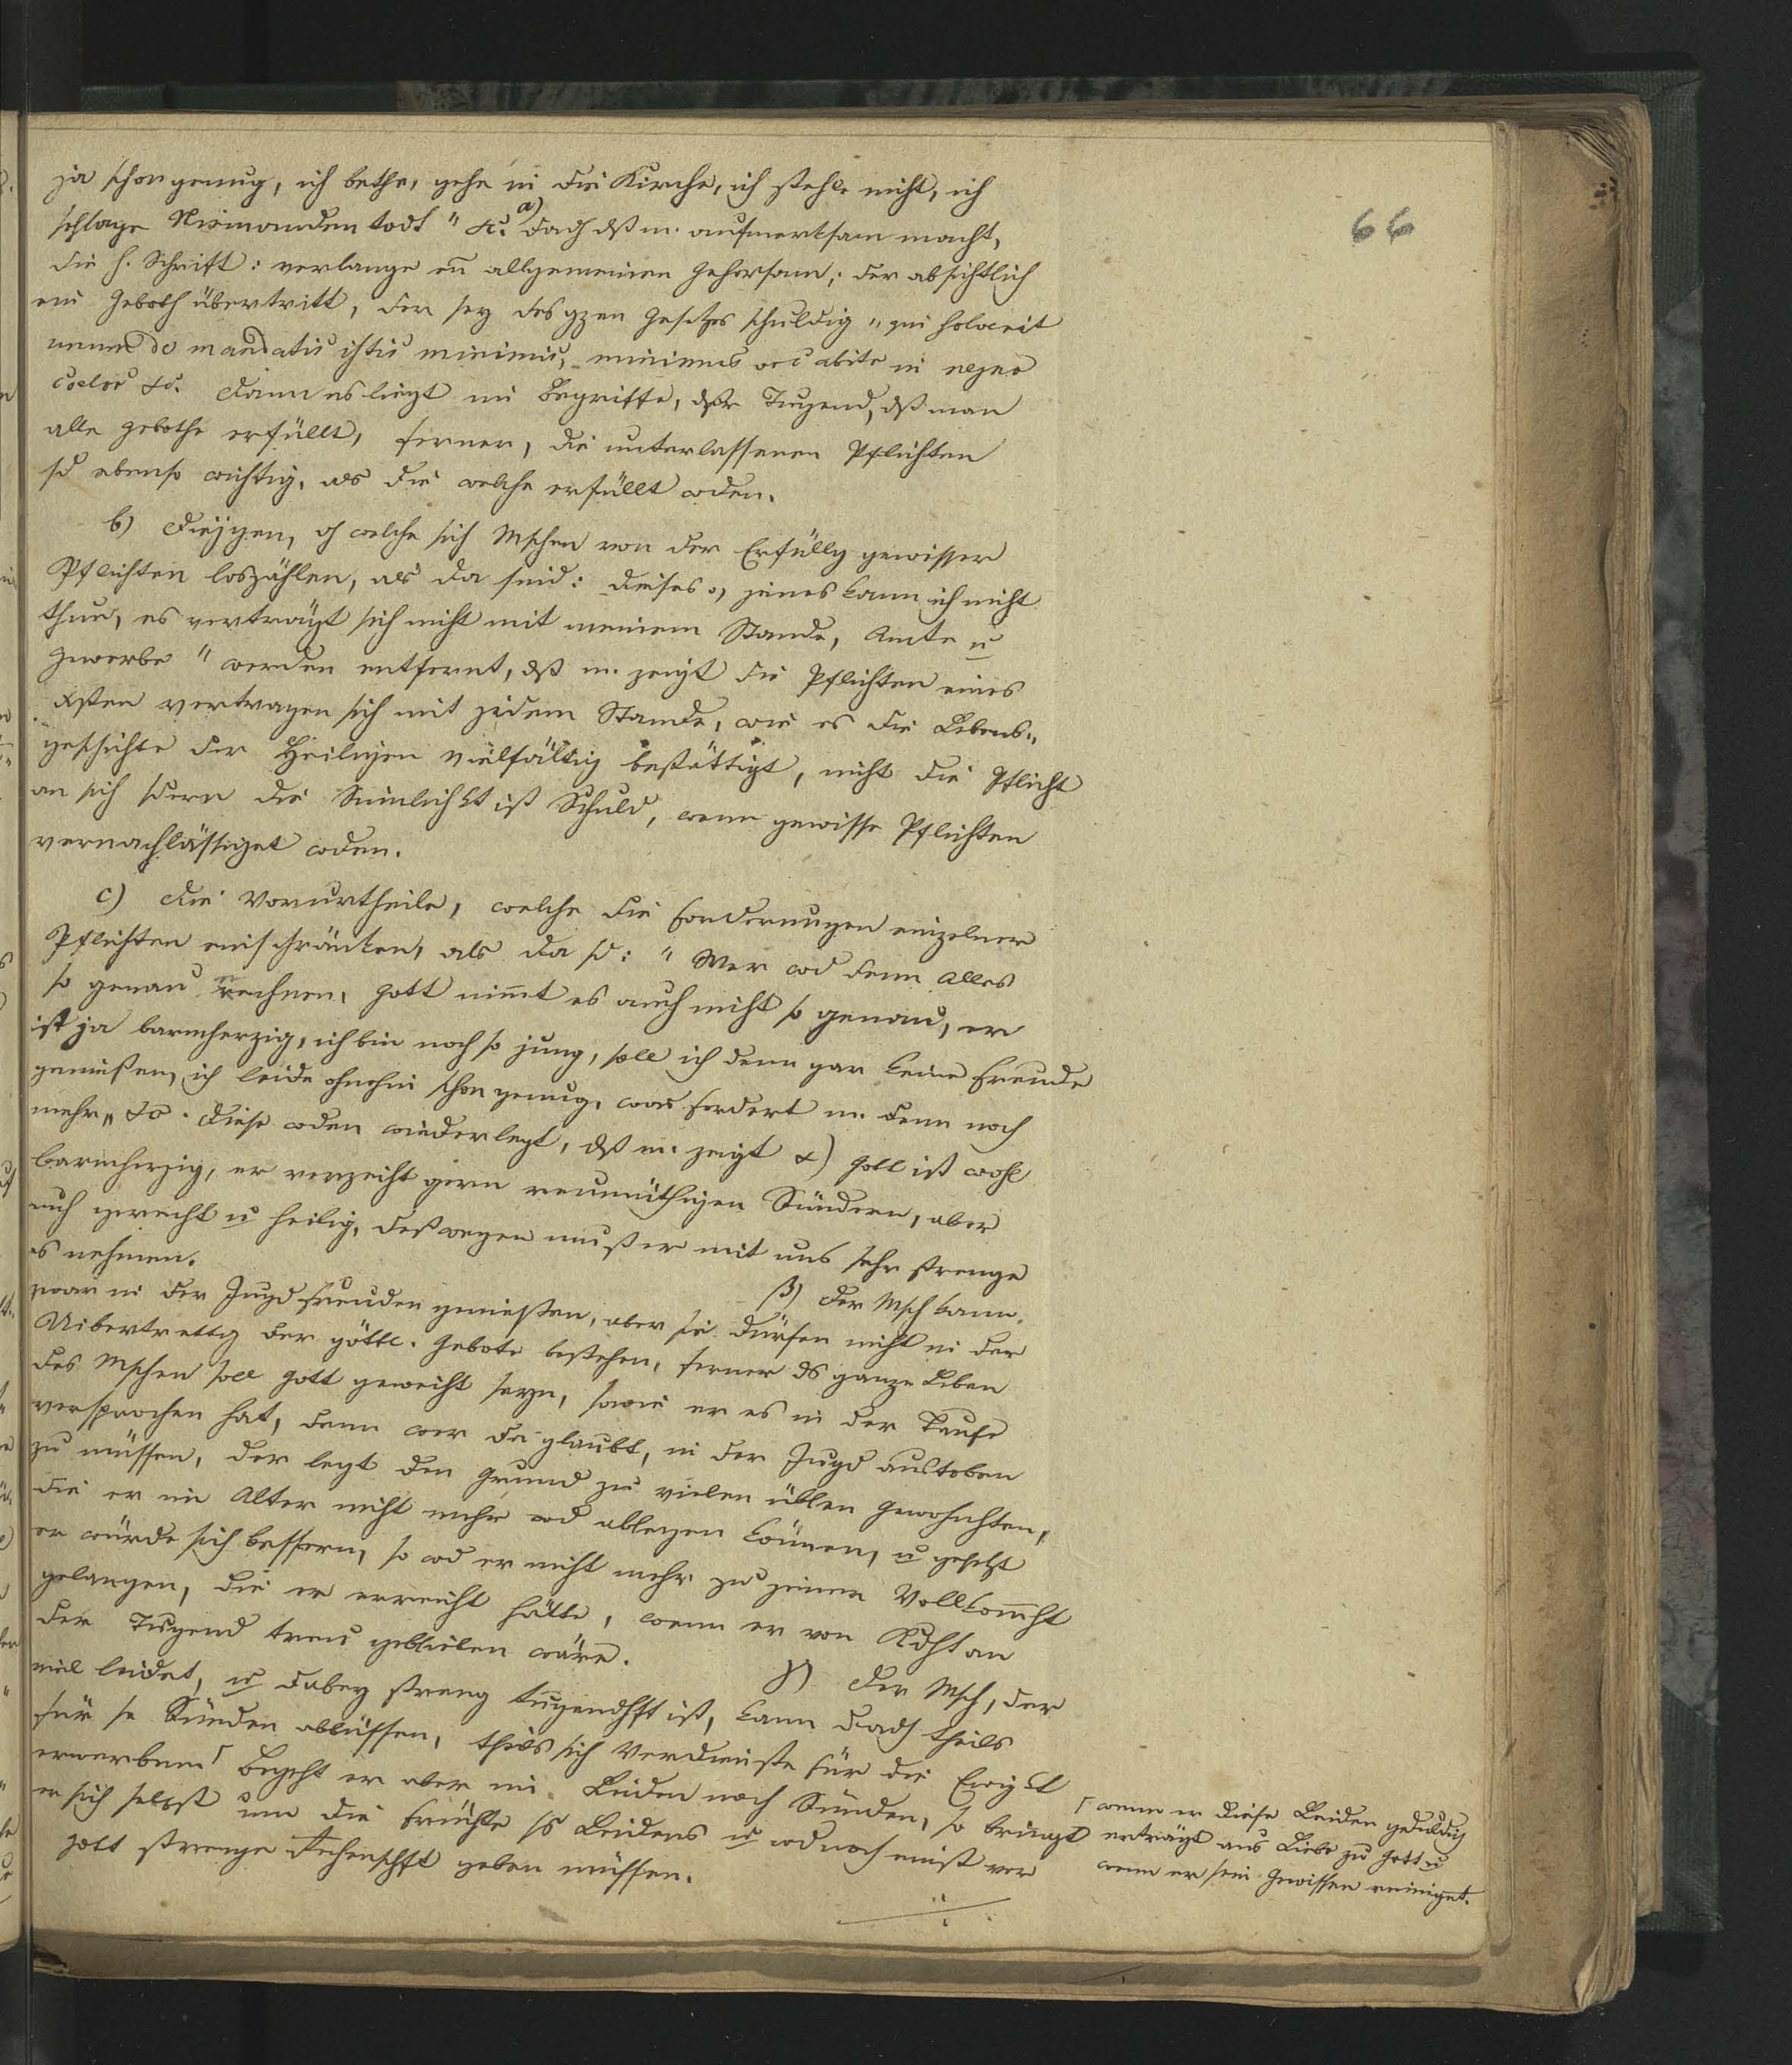 66
ja schon genug, ich bethe, gehe in die Kirche, ich stehle nicht, ich
schlage Niemanden todt " &c. a) dadh dß m. aufmerksam macht,
die h. Schrift: verlange en allgemeinen Gehorsam; der absichtlich
ein Geboth übertritt, der sey des gzen Gesetzes schuldig " qui solverit
unum de mandatis istis minimis, minimus vocabitr in regno
coelor &c. dann es liegt im Begriffe, der Tugend, dß man
alle Gebothe erfüllt, ferner, die unterlassenen Pflichten
sd ebenso wichtig, als die welche erfüllt wden.
b) Diejgen, dh welche sich Mschen von der Erfüllg gewisser
Pflichten loszählen, als da sind: dieses o, jenes kann ich nicht
thun, es verträgt sich nicht mit meinem Stande, Amte u
Gewerbe " werden entfernt, dß m. zeigt die Pflichten eines
Xsten vertragen sich mit jedem Stande, wie es die Lebens„
geschichte der Heiligen vielfältig bestättigt, nicht die Pflicht
an sich sdern die Sinnlichkt ist Schuld, wenn gewisse Pflichten
vernachlässiget wden.
c) Die Vorurtheile, welche die Forderungen einzelner
Pflichten einschränken, als da sd: " Wer wd denn alles
so genau rechnen, Gott nimmt es auch nicht so genau, er
ist ja barmherzig, ich bin noch so jung, soll ich denn gar keine Freude
genießen, ich leide ohnehin schon genug, was fordert m. denn noch
mehr „ &c. Diese wden wiederlegt, dß m. zeigt α) Gott ist wohl
barmherzig, er verzeiht gern reumüthigen Sündern, aber
auch gerecht u heilig, deßwegen muß er mit uns sehr strenge
es nehmen.
β) Der Msch kann
zwar in der Jugd Freuden genießen, aber sie dürfen nicht in der
Uibertrettg der göttl. Gebote bestehen, ferner ds ganze Leben
des Mschen soll Gott geweiht seyn, sowie er es in der Taufe
versprochen hat, denn wer da glaubt, in der Jugd austoben
zu müssen, der legt den Grund zu vielen üblen Gewohnhten,
die er im Alter nicht mehr wd ablegen können, u gesetzt
er würde sich bessern, so wd er nicht mehr zu jener Vollkommht
gelangen, die er erreicht hätte, wenn er von Kdht an
der Tugend treu geblieben wäre.
γ) Der Msch, der
viel leidet, u dabey streng tugendhft ist, kann dadh theils
für se Sünden abbüssen, theils sich Verdienste für die Ewigkt
erwerben ┌ Begeht er aber im Leiden noch Sünden, so bringt
er sich selbst um die Früchte ss Leidens u wd noch einst vor
Gott strenge Rechenschft geben müssen.
┌ wenn er diese Leiden geduldig
erträgt aus Liebe zu Gott u
wenn er sein Gewissen reiniget.